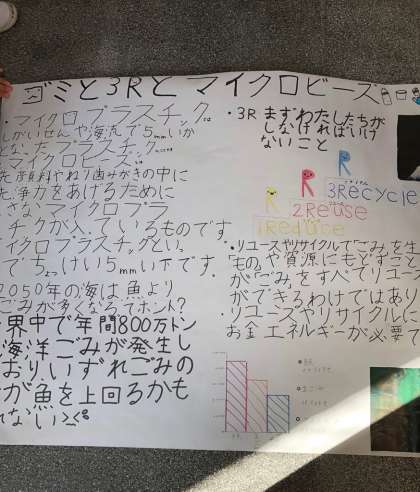 ゴミと3Rとマイクロビーズ
・マイクロプラスチックは
しがいせんや海流で5mmいか
となったプラスチック
マイクロビーズは
洗顔料やねり歯みがきの中に
洗浄力をあげるために
さなマイクロプラ
チックが入っているものです
イクロプラスチックとい
でちょっけい5mm以下です
2050年の海は魚より
ごみが多くなるってホント?
界中で年間800万トン
海洋ごみが発生し
おり、いずれごみの
が魚を上回るかも
れない
・3R まずわたしたちが
しなければいけ
ないこと
3Recycle
2Reuse
1Reduce
・リユースやリサイクルで「ごみ」を生
「もの」や資源にもどすこと
が「ごみ」をすべてリユース
ができるわけではあり
・リユースやリサイクルに
お金 エネルギーが必要で